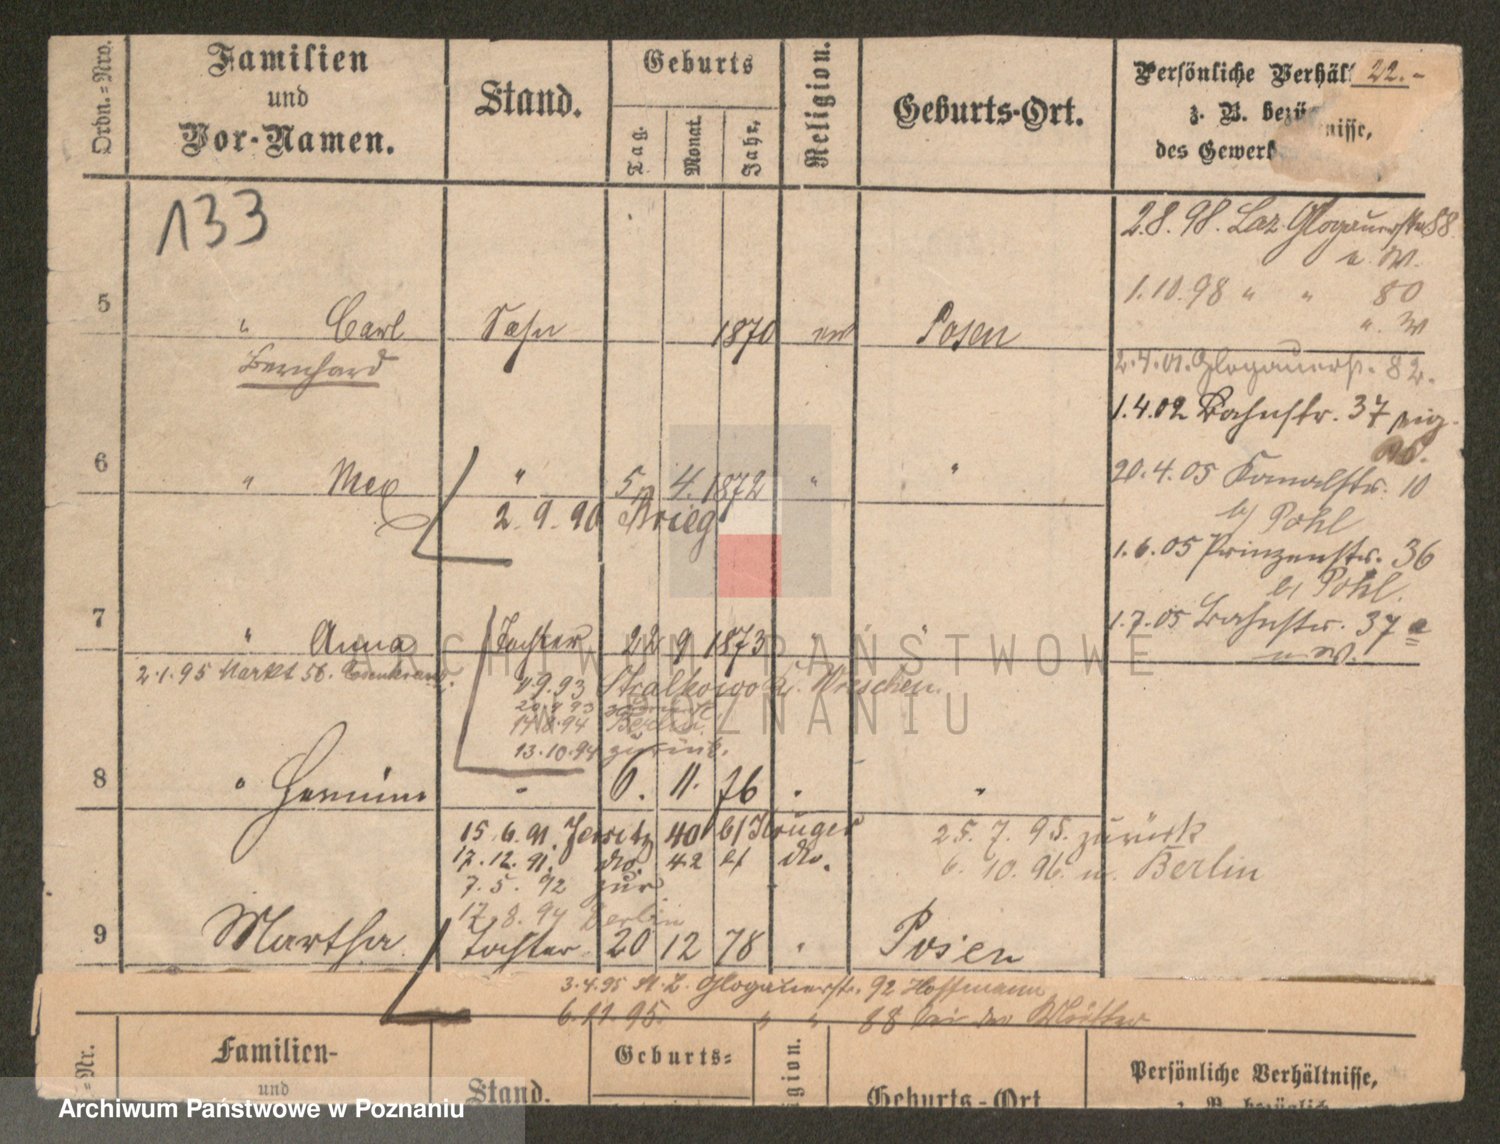 Ordn.=Nro.
Familien
und
Vor-Namen.
Stand.
Geburts
Tag.
Monat.
Jahr.
Religion.
Geburts-Ort.
Persönliche Verhäl 22.-
z. B. bezü nisse,
des Gewerb
133
2.8.98. Laz. Glogauerstr 88.
u. W.
1.10.98 " " 80
u. W
5 " Carl Sohn 1870 ev Posen
Bernhard
2.4.01. Glogauerst. 82.
1.4.02 Bahnstr. 37 eig.
W.
6 " Max " 5 4. 1872 " "
2.9.90 Krieg
20.4.05 Kanalstr. 10
b/ Pohl
1.6.05 Prinzenstr. 36
b/ Pohl.
7 " Anna Tochter 22 9 1873 "
1.7.05 Bahnstr. 37 a
u. W.
2.1.95 Markt 56.
1.9.93 Stralkowo Kr. Wreschen.
20.9.93 zurück
17.8.94 Berlin.
13.10.94 zurück.
8 " Hermine " 6. 11. 76 " "
15.6.91. Jersitz 40 b/ Krüger
25.7.95. zurück
17.12.91. do. 42 b/ do.
6.10.96. n. Berlin
7.5.92 zur
17.8.94 Berlin
9 Martha Tochter 20 12 78 " Posen
3.4.95 St. L. Glogauerstr. 92 Hoffmann
6.11.95. " " 88 bei der Mutter
=Nr.
Familien-
und
Stand.
Geburts=
igion.
Geburts-Ort
Persönliche Verhältnisse,
z. B. bezüglich
ARCHIWUM PAŃSTWOWE
W POZNANIU
Archiwum Państwowe w Poznaniu